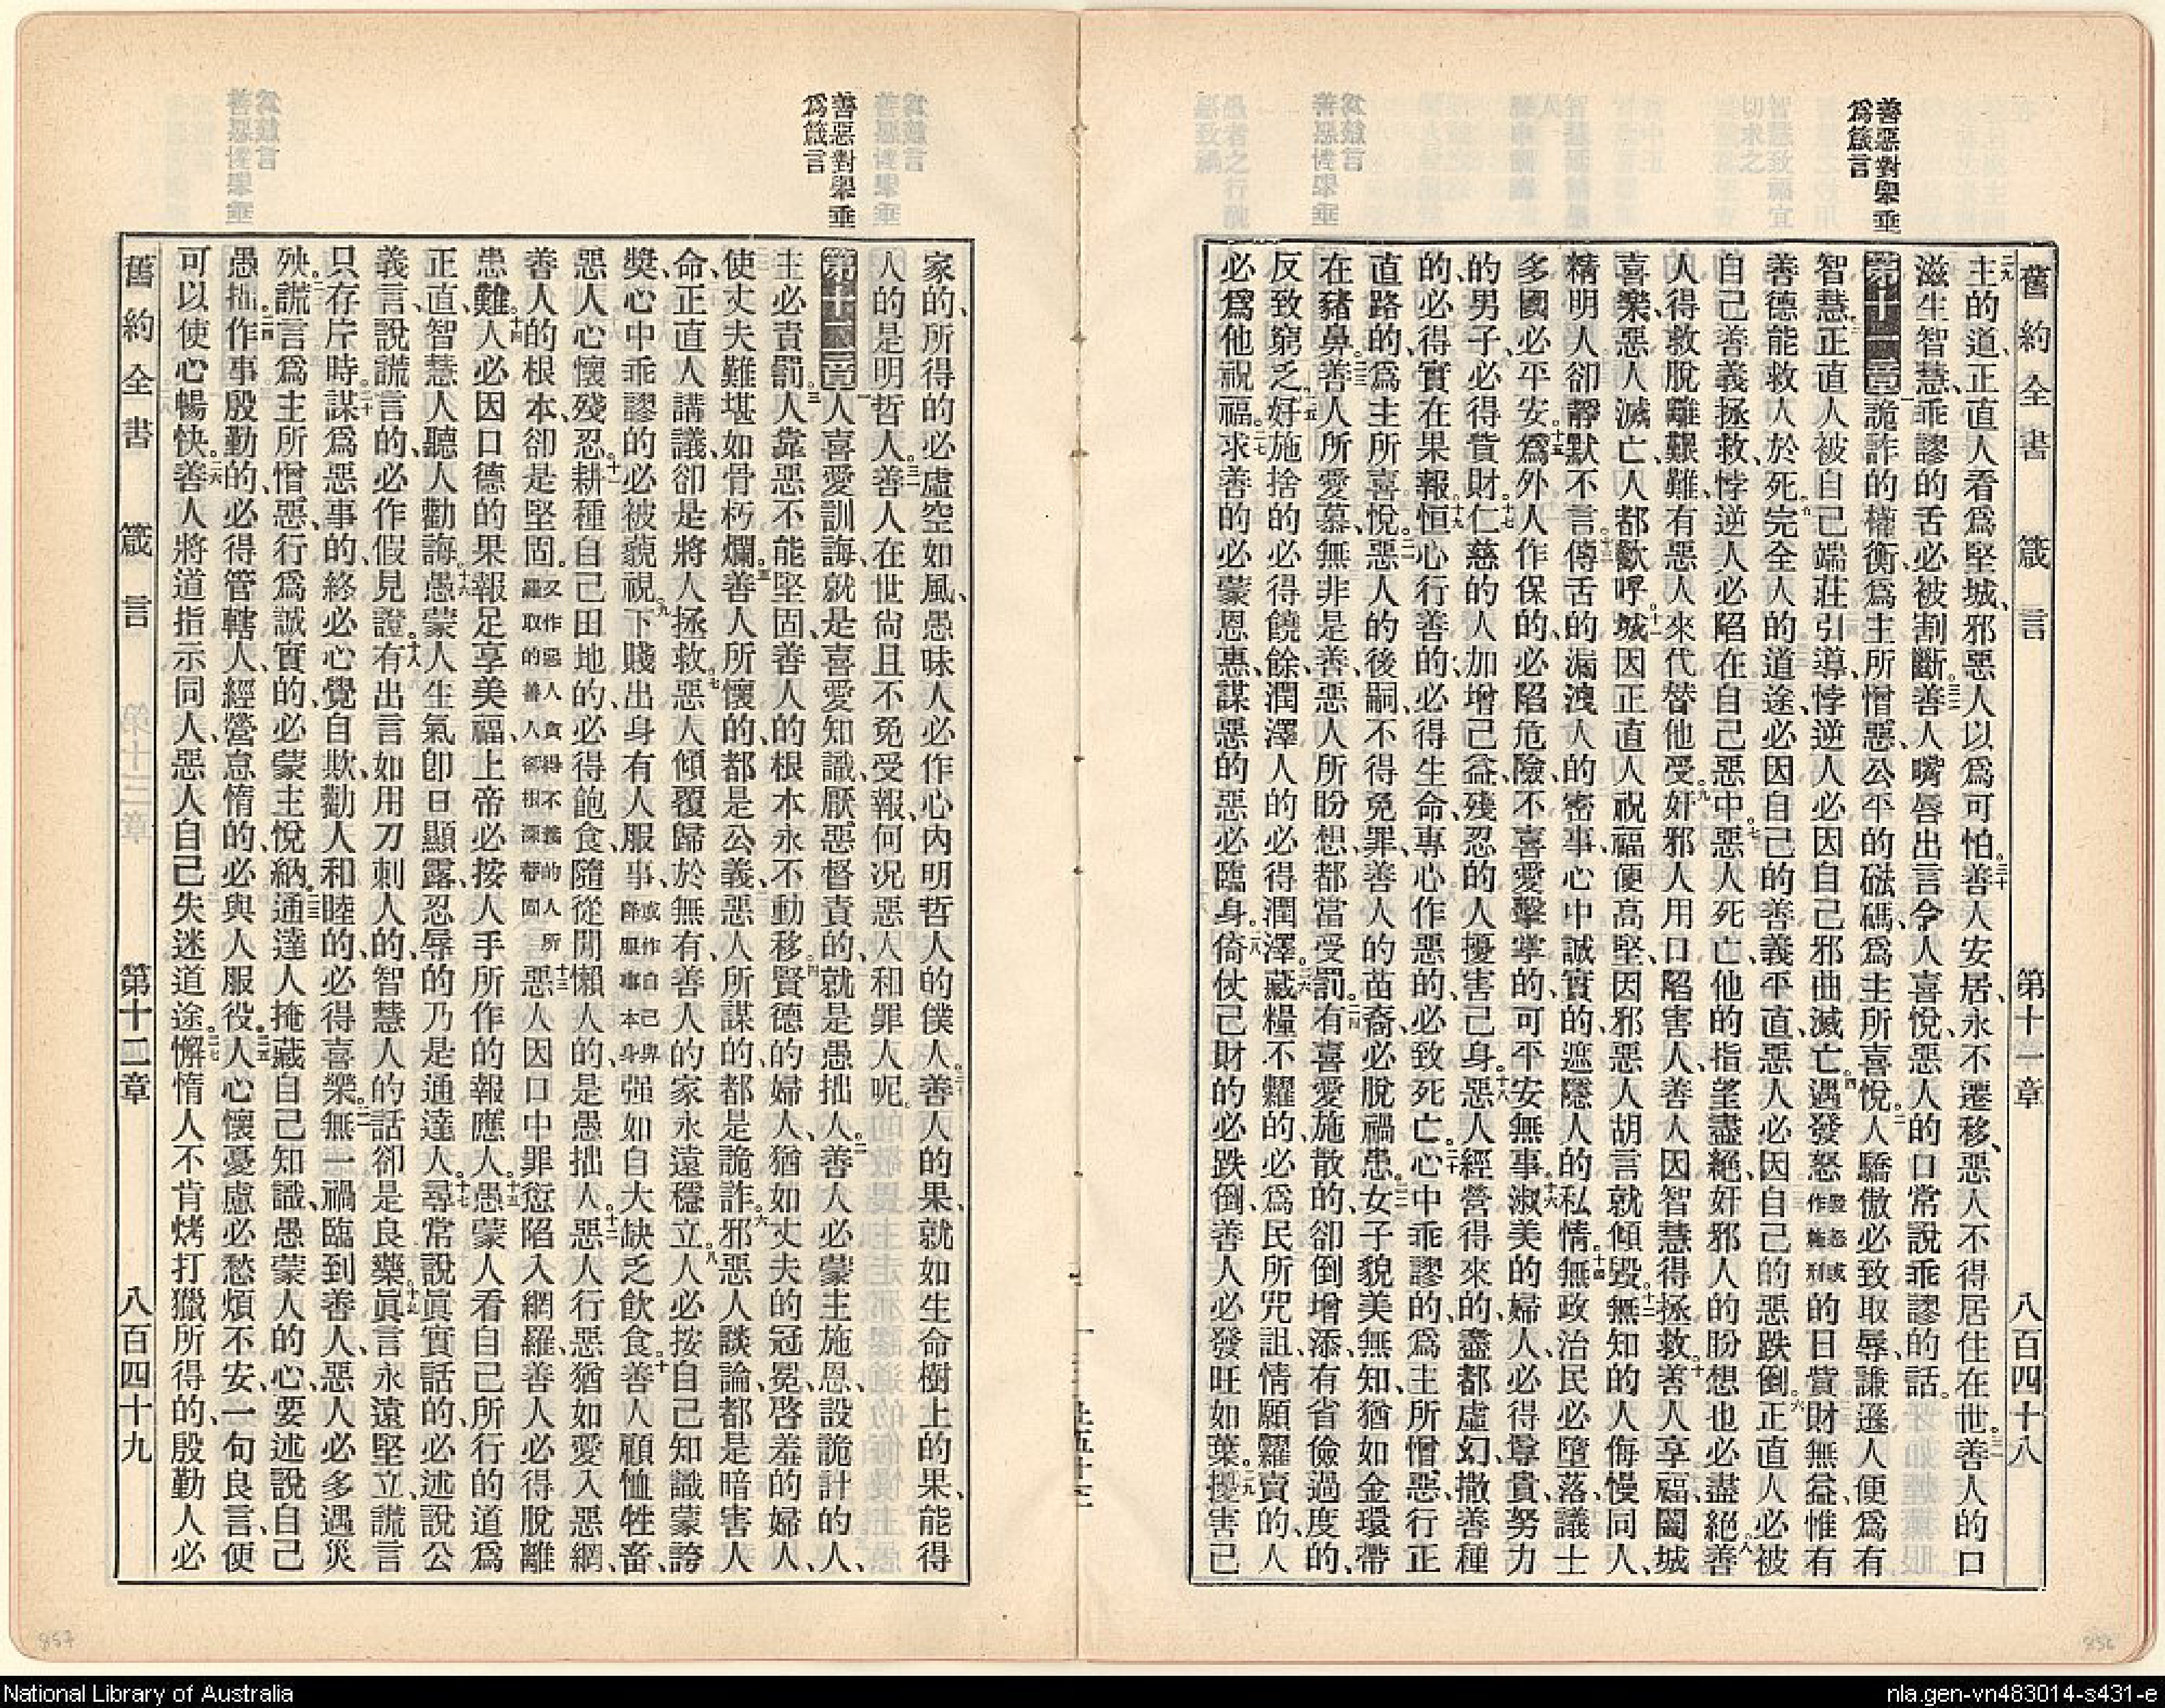 善惡對舉垂
爲箴言
舊約全書 箴言 第十一章 八百四十八
主的道、正直人看爲堅城、邪惡人以爲可怕。三十善人安居、永不遷移、惡人不得居住在世。三一善人的口
滋生智慧、乖謬的舌必被割斷。三二善人嘴唇出言、令人喜悅、惡人的口、常說乖謬的話。
第十一章一詭詐的權衡、爲主所憎惡、公平的砝碼、爲主所喜悅。二人驕傲必致取辱、謙遜人便爲有
智慧。三正直人被自己端莊引導、悖逆人必因自己邪曲滅亡。四遇發怒發怒或作施刑的日、貲財無益、惟有
善德能救人於死。五完全人的道途、必因自己的善義平直、惡人必因自己的惡跌倒。六正直人必被
自己善義拯救、悖逆人必陷在自己惡中。七惡人死亡、他的指望盡絕、奸邪人的盼想也必盡絕。八善
人得救脫離艱難、有惡人來代替他受。九奸邪人用口陷害人、善人因智慧得拯救。十善人享福、闔城
喜樂、惡人滅亡、人都歡呼。十一城因正直人祝福便高堅、因邪惡人胡言就傾毀。十二無知的人侮慢同人、
精明人卻靜默不言。十三傳舌的漏洩人的密事、心中誠實的遮隱人的私情。十四無政治民必墮落、議士
多國必平安。十五爲外人作保的、必陷危險、不喜愛擊掌的、可平安無事。十六淑美的婦人、必得尊貴、努力
的男子、必得貲財。十七仁慈的人加增己益、殘忍的人擾害己身。十八惡人經營得來的、盡都虛幻、撒善種
的、必得實在果報。十九恒心行善的、必得生命、專心作惡的、必致死亡。二十心中乖謬的、爲主所憎惡、行正
直路的、爲主所喜悅。二一惡人的後嗣、不得免罪、善人的苗裔、必脫禍患。二二女子貌美無知、猶如金環帶
在豬鼻。二三善人所愛慕、無非是善、惡人所盼想、都當受罰。二四有喜愛施散的、卻倒增添、有省儉過度的、
反致窮乏。二五好施捨的、必得饒餘、潤澤人的、必得潤澤。二六藏糧不糶的、必爲民所咒詛、情願糶賣的、人
必爲他祝福。二七求善的必蒙恩惠、謀惡的惡必臨身。二八倚仗己財的必跌倒、善人必發旺如葉。二九擾害己
善惡對舉垂
爲箴言
家的、所得的必虛空如風、愚昧人必作心內明哲人的僕人。三十善人的果、就如生命樹上的果、能得
人的是明哲人。三一善人在世尙且不免受報、何況惡人和罪人呢。
第十二章一人喜愛訓誨、就是喜愛知識、厭惡督責的、就是愚拙人。二善人必蒙主施恩、設詭計的人、
主必責罰。三人靠惡不能堅固、善人的根本、永不動移。四賢德的婦人、猶如丈夫的冠冕、啓羞的婦人、
使丈夫難堪、如骨朽爛。五善人所懷的、都是公義、惡人所謀的、都是詭詐。六邪惡人談論、都是暗害人
命、正直人講議、卻是將人拯救。七惡人傾覆、歸於無有、善人的家、永遠穩立。八人必按自己知識蒙誇
獎、心中乖謬的、必被藐視。九下賤出身有人服事、或作自己與降服事本身强如自大缺乏飲食。十善人顧恤牲畜、
惡人心懷殘忍。十一耕種自己田地的、必得飽食、隨從閒懶人的、是愚拙人。十二惡人行惡、猶如愛入惡網、
善人的根本、卻是堅固。又作惡人貪得不義的人所羅取的善人卻根深蒂固十三惡人因口中罪愆陷入網羅、善人必得脫離
患難。十四人必因口德的果報、足享美福、上帝必按人手所作的報應人。十五愚蒙人看自己所行的道爲
正直、智慧人聽人勸誨。十六愚蒙人生氣卽日顯露、忍辱的乃是通達人。十七尋常說眞實話的、必述說公
義言、說謊言的、必作假見證。十八有出言如用刀刺人的、智慧人的話卻是良藥。十九眞言永遠堅立、謊言
只存片時。二十謀爲惡事的、終必心覺自欺、勸人和睦的、必得喜樂。二一無一禍臨到善人、惡人必多遇災
殃。二二謊言爲主所憎惡、行爲誠實的、必蒙主悅納。二三通達人掩藏自己知識、愚蒙人的心、要述說自己
愚拙。二四作事殷勤的、必得管轄人、經營怠惰的、必與人服役。二五人心懷憂慮、必愁煩不安、一句良言、便
可以使心暢快。二六善人將道指示同人、惡人自己失迷道途。二七懈惰人不肯烤打獵所得的、殷勤人必
舊約全書 箴言 第十二章 八百四十九
857
856
National Library of Australia
nla.gen-vn483014-s431-e